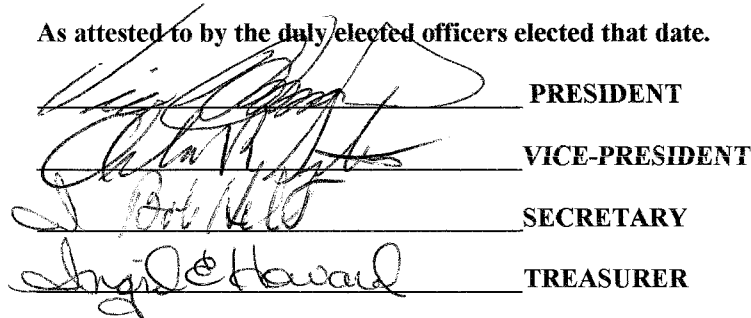 As attested to by the duly elected officers elected that date.
PRESIDENT
VICE-PRESIDENT
SECRETARY
Ingrid E Howard TREASURER